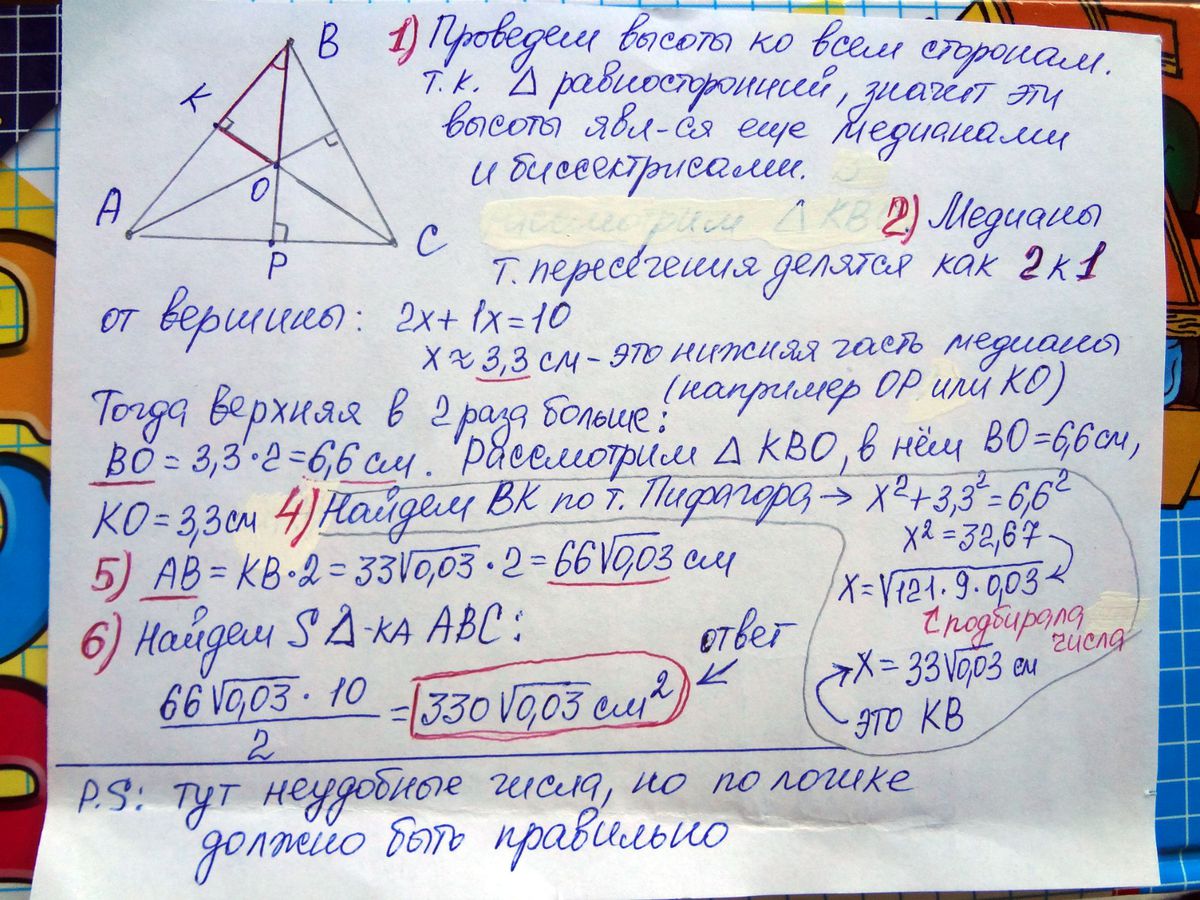 B
K
O
A
C
P
1) Проведем высоты ко всем сторонам.
т.к. Δ равносторонний, значит эти
высоты явл-ся еще медианами
и биссектрисами.
рассмотрим Δ KB 2) Медианы
т. пересечения делятся как 2 к 1
от вершины: 2x+1x=10
x≈3,3 см - это нижняя часть медианы
(например OP или KO)
Тогда верхняя в 2 раза больше:
BO=3,3·2=6,6 см. Рассмотрим Δ KBO, в нём BO=6,6 см,
KO=3,3 см 4) Найдем BK по т. Пифагора → x²+3,3²=6,6²
x²=32,67
x=√121·9·0,03
↑ подбирала
числа
x=33√0,03 см
это KB
5) AB=KB·2=33√0,03·2=66√0,03 см
6) Найдем S Δ-ка ABC:
66√0,03·10
2
= 330√0,03 см²
ответ
P.S: тут неудобные числа, но по логике
должно быть правильно